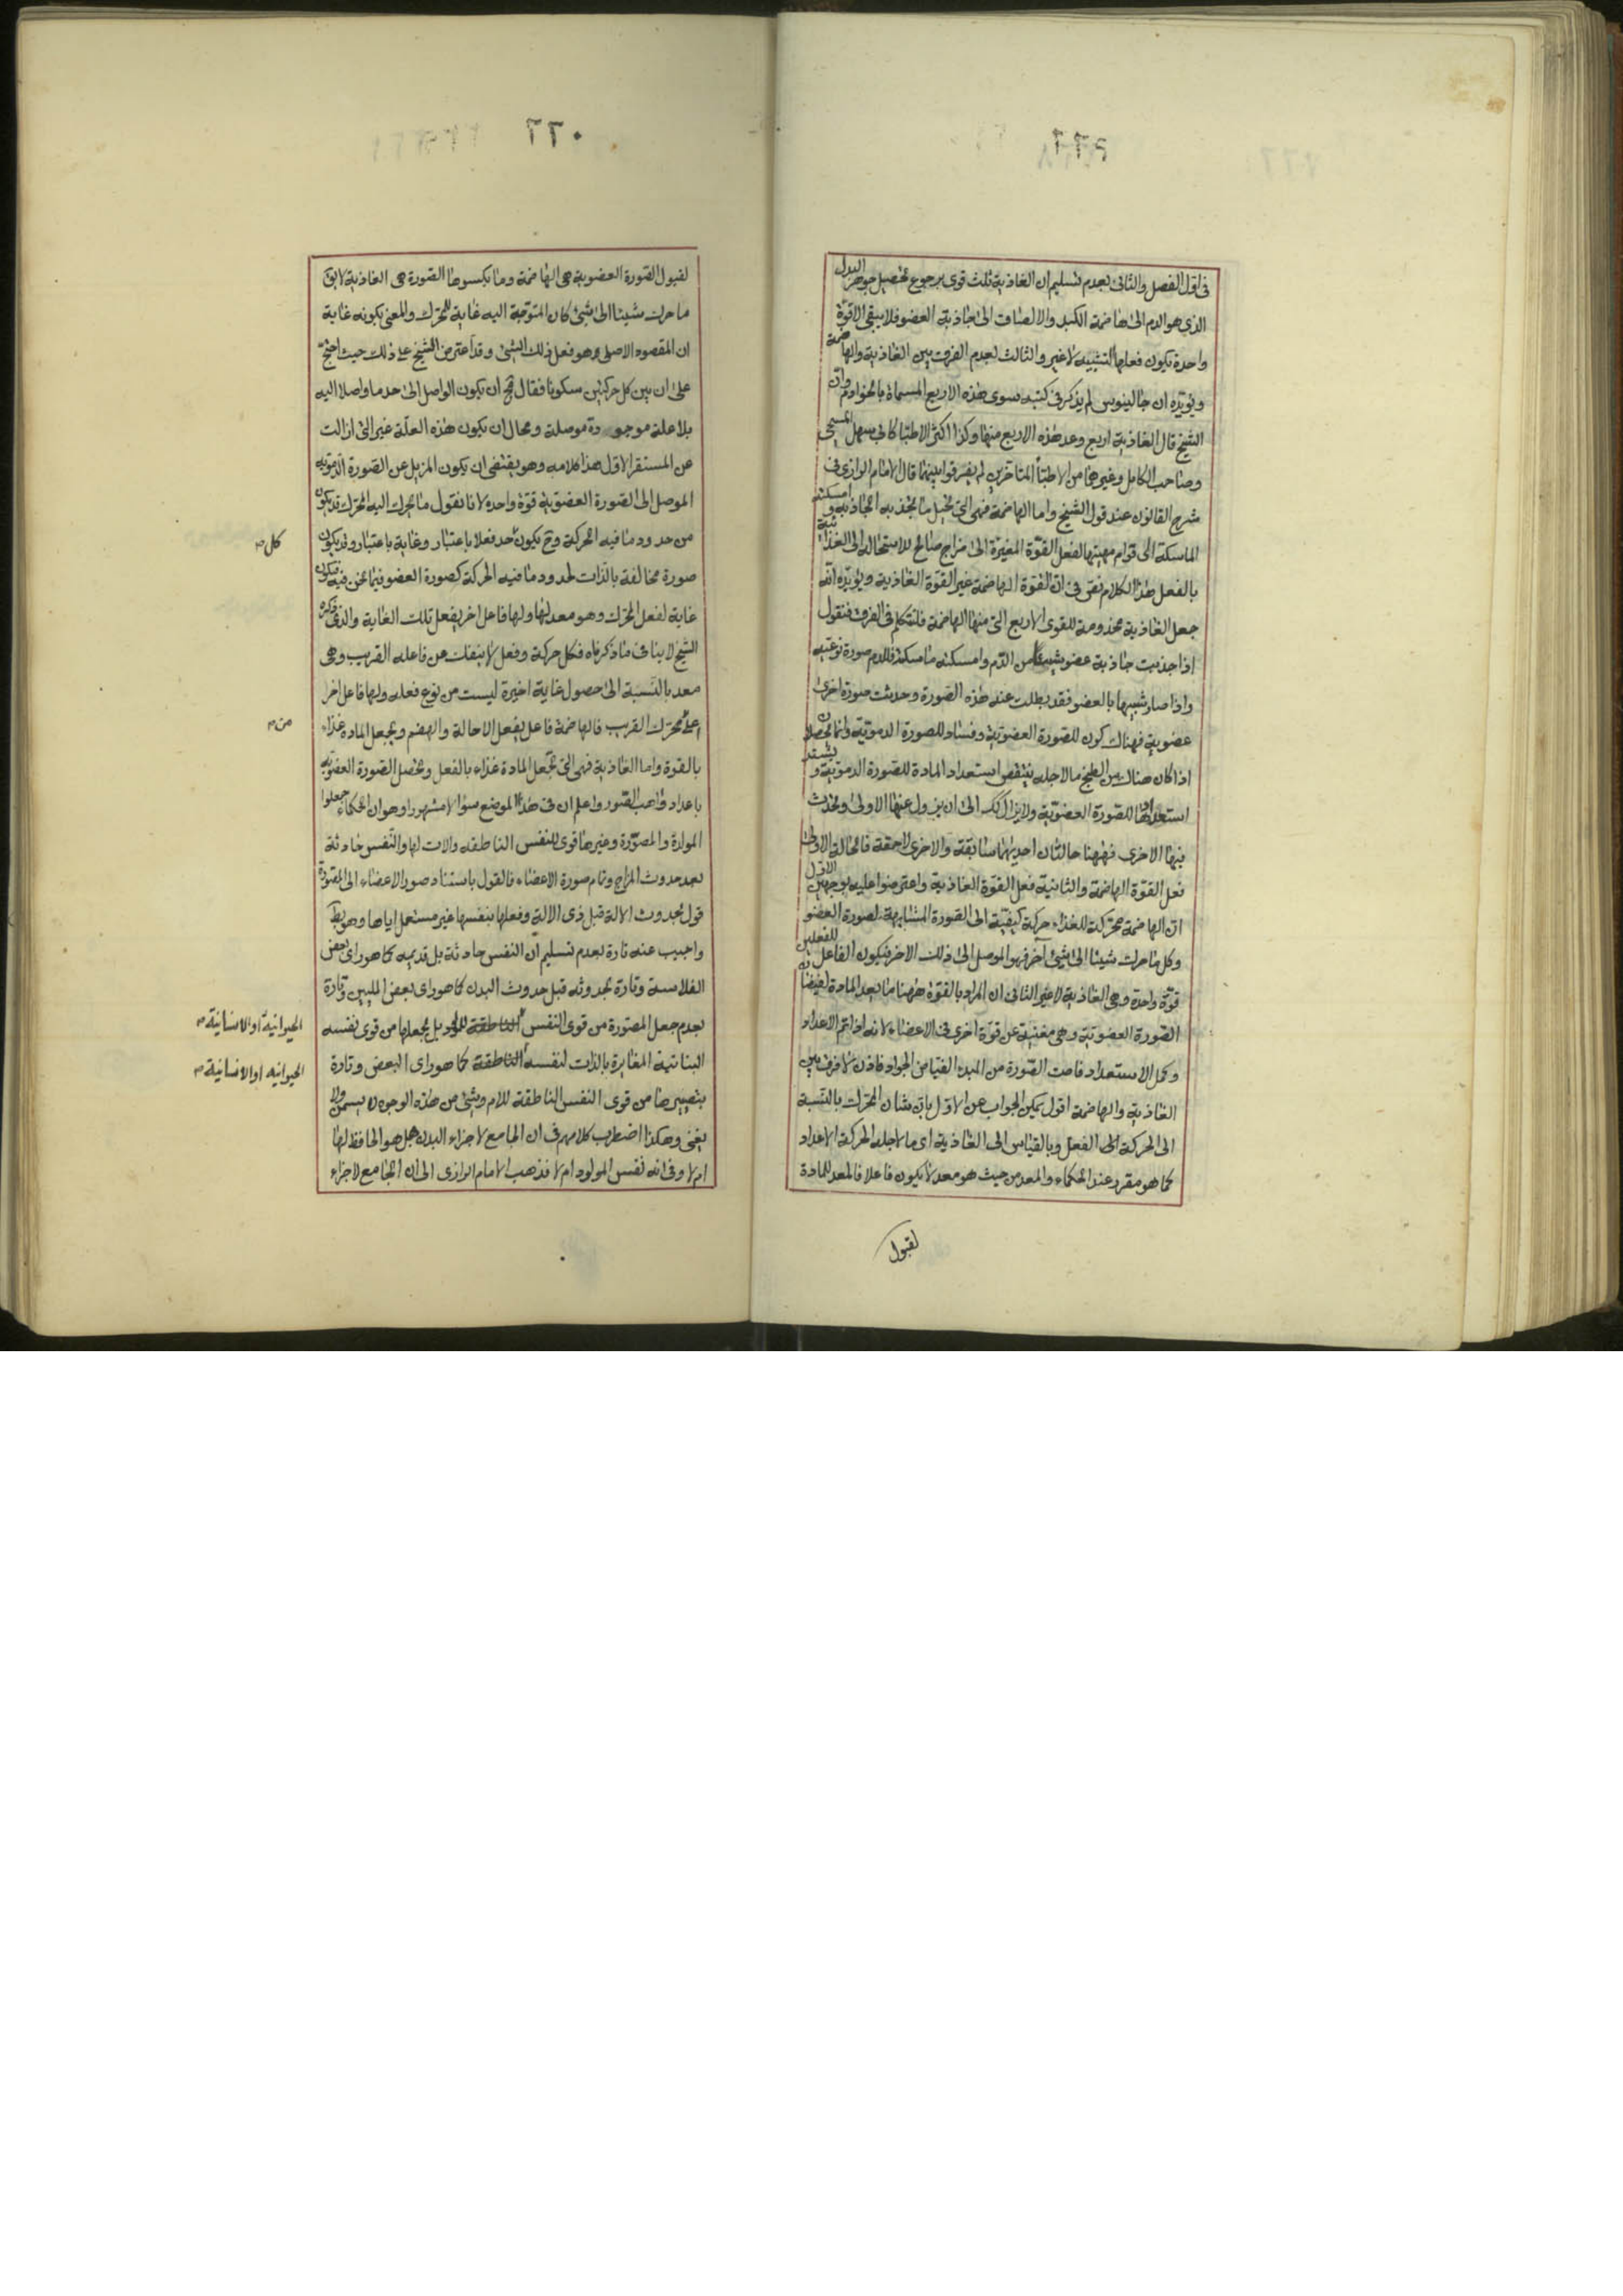 فى اول الفصل والثانى بعدم تسليم ان الغاذية ثلث قوى برجوع تحصيل جوهر البدل
الذى هو الدم الى هاضمة الكبد والالصاق الى جاذبة العضو فلا يبقى الا قوة
واحدة يكون فعلها التشبيه لا غير والثالث بعدم الفرق بين الغاذية والهاضمة
ويؤيده ان جالينوس لم يذكر فى كتبه سوى هذه الاربع المسماة بالخوادم وان
الشيخ قال الغاذية اربع وعد هذه الاربع منها وكذا اكثر الاطبا كابى سهل المسيحى
وصاحب الكامل وغيرهما من الاطبآ المتاخرين لم يفرقوا بينهما قال الامام الرازى فى
شرح القانون عند قول الشيخ واما الهاضمة فهى التى تحيل ما تجذبه الجاذبة وامسكته
الماسكة الى قوام مهيئها لفعل القوة المغيرة الى مزاج صالح للاستحالة الى الغذائية
بالفعل هذا الكلام نص فى ان القوة الهاضمة غير القوة الغاذية ويؤيده انه
جعل الغاذية مخدومة للقوى الاربع التى منها الهاضمة فلنتكلم فى الفرق فنقول
اذا جذبت جاذبة عضو شيئا من الدم وامسكته ماسكته فللدم صورة نوعية
واذا صار شبيها بالعضو فقد بطلت عنه هذه الصورة وحدثت صورة اخرى
عضوية فهناك كون للصورة العضوية وفساد للصورة الدموية وانما يحصلان
اذا كان هناك من الطبخ ما لاجله ينقص استعداد المادة للصورة الدموية ويشتد
استعدادها للصورة العضوية ولا يزال كك الى ان يزول عنها الاولى وتحدث
فيها الاخرى فههنا حالتان احديهما سابقة والاخرى لاحقة فالحالة الاولى
فعل القوة الهاضمة والثانية فعل القوة الغاذية واعترضوا عليه بوجهين الاول
ان الهاضمة محركة للغذاء حركة كيفية الى الصورة المشابهة لصورة العضو
وكل ما حرك شيئا الى شئ آخر فهو الموصل الى ذلك الاخر فيكون الفاعل للفعلين
قوة واحدة وهى الغاذية لا غير الثانى ان المراد بالقوة ههنا ما يعد المادة لفيضان
الصورة العضوية وهى مغنية عن قوة اخرى فى الاعضاء لانه اذا تم الاعداد
وكمل الاستعداد فاضت الصورة من المبدء الفياض الجواد فاذن لا فرق بين
الغاذية والهاضمة اقول يمكن الجواب عن الاول بان شان المحرك بالنسبة
الى الحركة الى الفعل وبالقياس الى الغاذية اى ما لاجله الحركة الاعداد
كما هو مقرر عند الحكماء والمعد من حيث هو معد لا يكون فاعلا فالمعد للمادة
لقبول
٠٦٦
لقبول الصورة العضوية هى الهاضمة وما يكسوها الصورة هى الغاذية لا يق
ما حرك شيئا الى شئ كان المتوجة اليه غاية للمحرك والمعنى بكونه غاية
ان المقصود الاصلى هو فعل ذلك الشئ وقد اعترض الشيخ على ذلك حيث احتج
على ان بين كل حركتين سكونا فقال مح ان يكون الواصل الى حد ما واصلا اليه
بلا علة موجودة موصلة ومحال ان يكون هذه العلة غير التى ازالت
عن المستقر الاول هذا كلامه وهو يقتضى ان يكون المزيل عن الصورة الدموية
الموصل الى الصورة العضوية قوة واحدة لانا نقول ما يحرك اليه المحرك قد يكون
من حدود ما فيه الحركة وح يكون حد فعلا باعتبار وغاية باعتبار وقد يكون
كل
صورة مخالفة بالذات لحدود ما فيه الحركة كصورة العضو فيما نحن فيه فيكون
غاية لفعل المحرك وهو معد لها ولها فاعل اخر يفعل تلك الغاية والذى ذكره
الشيخ لا ينافى ما ذكرناه فكل حركة وفعل لا ينفك عن فاعله القريب وهى
معد بالنسبة الى حصول غاية اخيرة ليست من نوع فعله ولها فاعل اخر
اعلى محرك القريب فالهاضمة فاعل يفعل الاحالة والهضم ويجعل المادة غذاء
من
بالقوة واما الغاذية فهى التى تجعل المادة غذاء بالفعل وتحصل الصورة العضوية
باعداد واهب الصور واعلم ان فى هذا الموضع سؤالا مشهورا وهو ان الحكماء جعلوا
المولدة والمصورة وغيرها قوى للنفس الناطقه والات لها والنفس حادثة
بعد حدوث المزاج وتمام صورة الاعضاء فالقول باستناد صور الاعضاء الى المصورة
قول بحدوث الالة قبل ذى الالة وفعلها بنفسها غير مستعمل اياها وهو بط
واجيب عنه تارة بعدم تسليم ان النفس حادثة بل قديمه كما هو راى بعض
الفلاسفة وتارة بحدوثه قبل حدوث البدن كما هو راى بعض المليين وتارة
بعدم جعل المصورة من قوى النفس الناطقة للمولود بل بجعلها من قوى نفسه
الحيوانية او الانسانية
النباتية المغايرة بالذات لنفسه الناطقة كما هو راى البعض وتارة
الحيوانيه او الانسانية
بتصييرها من قوى النفس الناطقة للام وشئ من هذه الوجوه لا يسمن ولا
يغنى وهكذا اضطرب كلامهم فى ان الجامع لاجزاء البدن هل هو الحافظ لها
ام لا وفى انه نفس المولود ام لا فذهب الامام الرازى الى ان الجامع لاجزاء